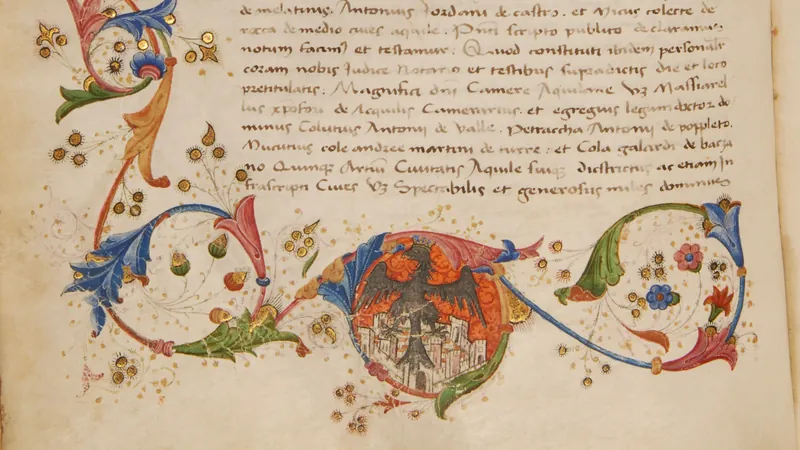 de melatinis. Antonius Jordani de castro. et Nicus colecte de
rocca de medio cives aquile. Pnti scripto publico declaramus
notum facim) et testamur. Quod constituti ibidem personalr
coram nobis Judice Notario et testibus supradictis die et loco
pretitulatis. Magnifici dni Camere Aquilane Vz Massiarel
lus xpofori de Acquilis Camerarius. et egregius legum doctor do
minus Colutius Antonii de Valle. Petruccha Antonii de poppleto.
Mucutius cole andree martini de turre: et Cola galardi de baza
no Quinqz Artium Civitatis Aquile suiqz districtus ac etiam In
frascripti Cives Vz Spectabilis et generosus miles dominus